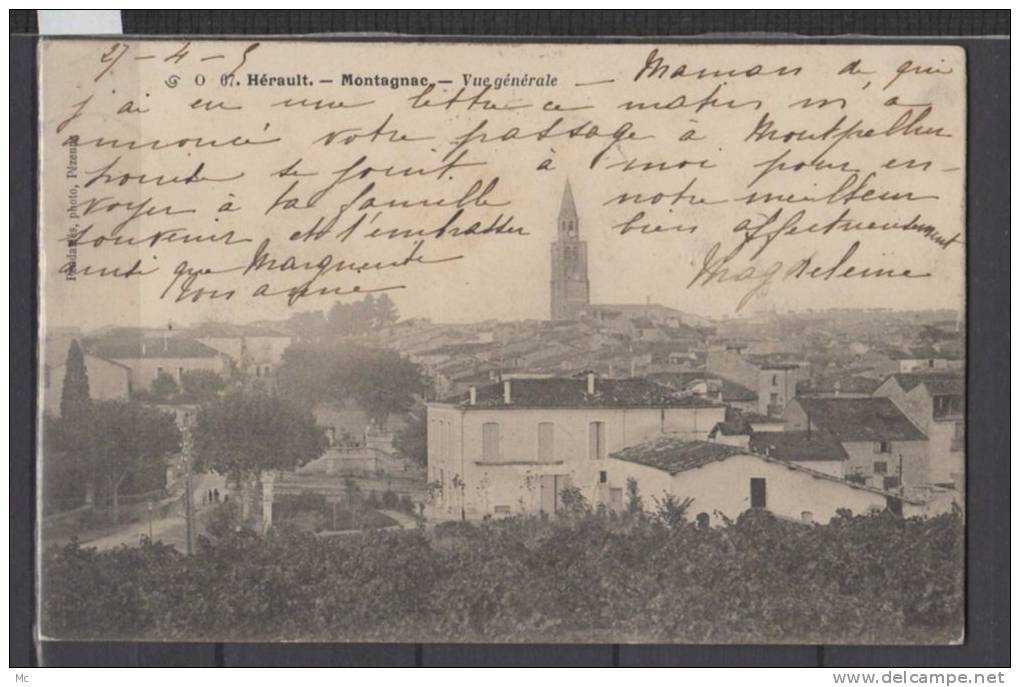 27-4-5
O 67. Hérault. — Montagnac. — Vue générale — Maman de qui
j'ai eu une lettre ce matin m'a
annoncé votre passage à Montpellier
se joint à moi pour en-
voyer à ta famille notre meilleur
souvenir et t'embrasser bien affectueusement
ainsi que Marguerite Magdeleine
photo, Pézenas
Mc
www.delcampe.net